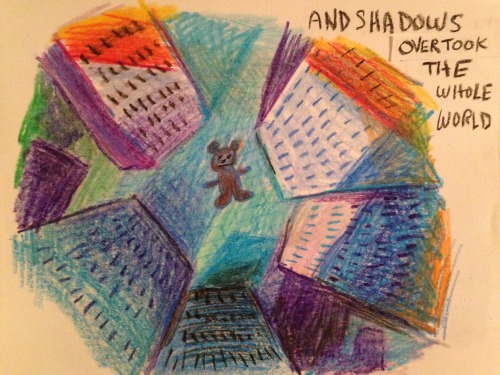 AND SHADOWS
OVERTOOK
THE
WHOLE
WORLD